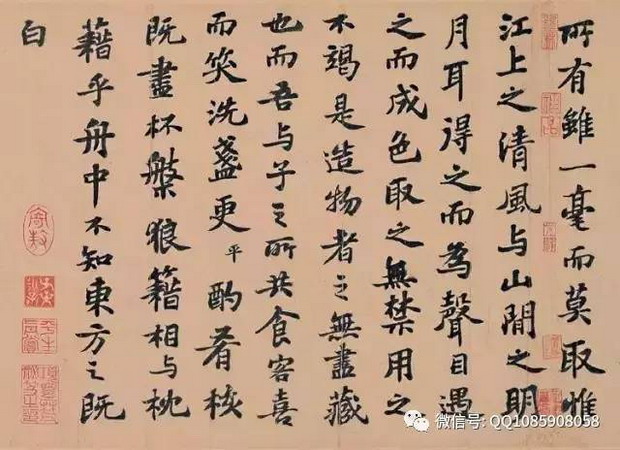 所有雖一毫而莫取惟
江上之清風与山間之明
月耳得之而為聲目遇
之而成色取之無禁用之
不竭是造物者之無盡藏
也而吾与子之所共食客喜
而笑洗盞更平酌肴核
既盡杯槃狼籍相与枕
藉乎舟中不知東方之既
白
微信号: QQ1085908058